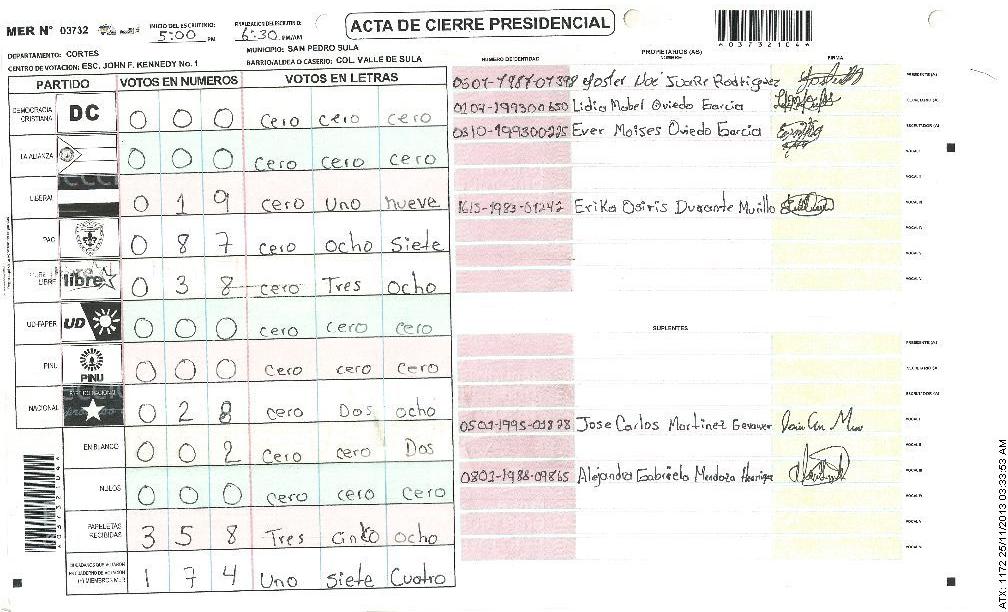 MER N° 03732
INICIO DEL ESCRUTINIO: 5:00 PM
FINALIZACION DEL ESCRUTINIO: 6:30 PM/AM
ACTA DE CIERRE PRESIDENCIAL
A03732104A
DEPARTAMENTO: CORTES
MUNICIPIO: SAN PEDRO SULA
CENTRO DE VOTACION: ESC. JOHN F. KENNEDY No. 1
BARRIO/ALDEA O CASERIO: COL VALLE DE SULA
PARTIDO VOTOS EN NUMEROS VOTOS EN LETRAS
DEMOCRACIA CRISTIANA DC 0 0 0 cero cero cero
LA ALIANZA 0 0 0 cero cero cero
LIBERAL 0 1 9 cero Uno nueve
PAC 0 8 7 cero ocho Siete
LIBRE libre 0 3 8 cero Tres ocho
UD-FAPER UD 0 0 0 cero cero cero
PINU PINU 0 0 0 cero cero cero
NACIONAL 0 2 8 cero Dos ocho
EN BLANCO 0 0 2 cero cero Dos
NULOS 0 0 0 cero cero cero
PAPELETAS RECIBIDAS 3 5 8 Tres cinko ocho
1 7 4 Uno Siete Cuatro
PROPIETARIOS (AS)
NUMERO DE IDENTIDAD NOMBRE FIRMA
PRESIDENTE (A)
0107-199300650 Lidia Mabel Oviedo Garcia SECRETARIO (A)
0310-199300225 Ever Moises Oviedo Garcia ESCRUTADOR (A)
VOCAL I
VOCAL II
1615-1983-01242 Erika Osiris Duarante Murillo VOCAL III
VOCAL IV
VOCAL V
SUPLENTES
PRESIDENTE (A)
SECRETARIO (A)
ESCRUTADOR (A)
0501-1995-01828 Jose Carlos Martinez VOCAL I
VOCAL II
0801-1988-09865 Alejandra Gabriela Mendoza VOCAL III
VOCAL IV
VOCAL V
ATX: 1172 25/11/2013 03:33:53 AM